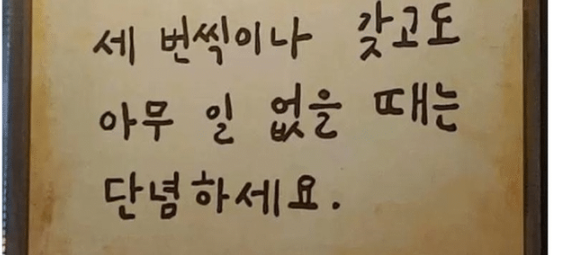 세 번씩이나 갖고도
아무 일 없을 때는
단념하세요.